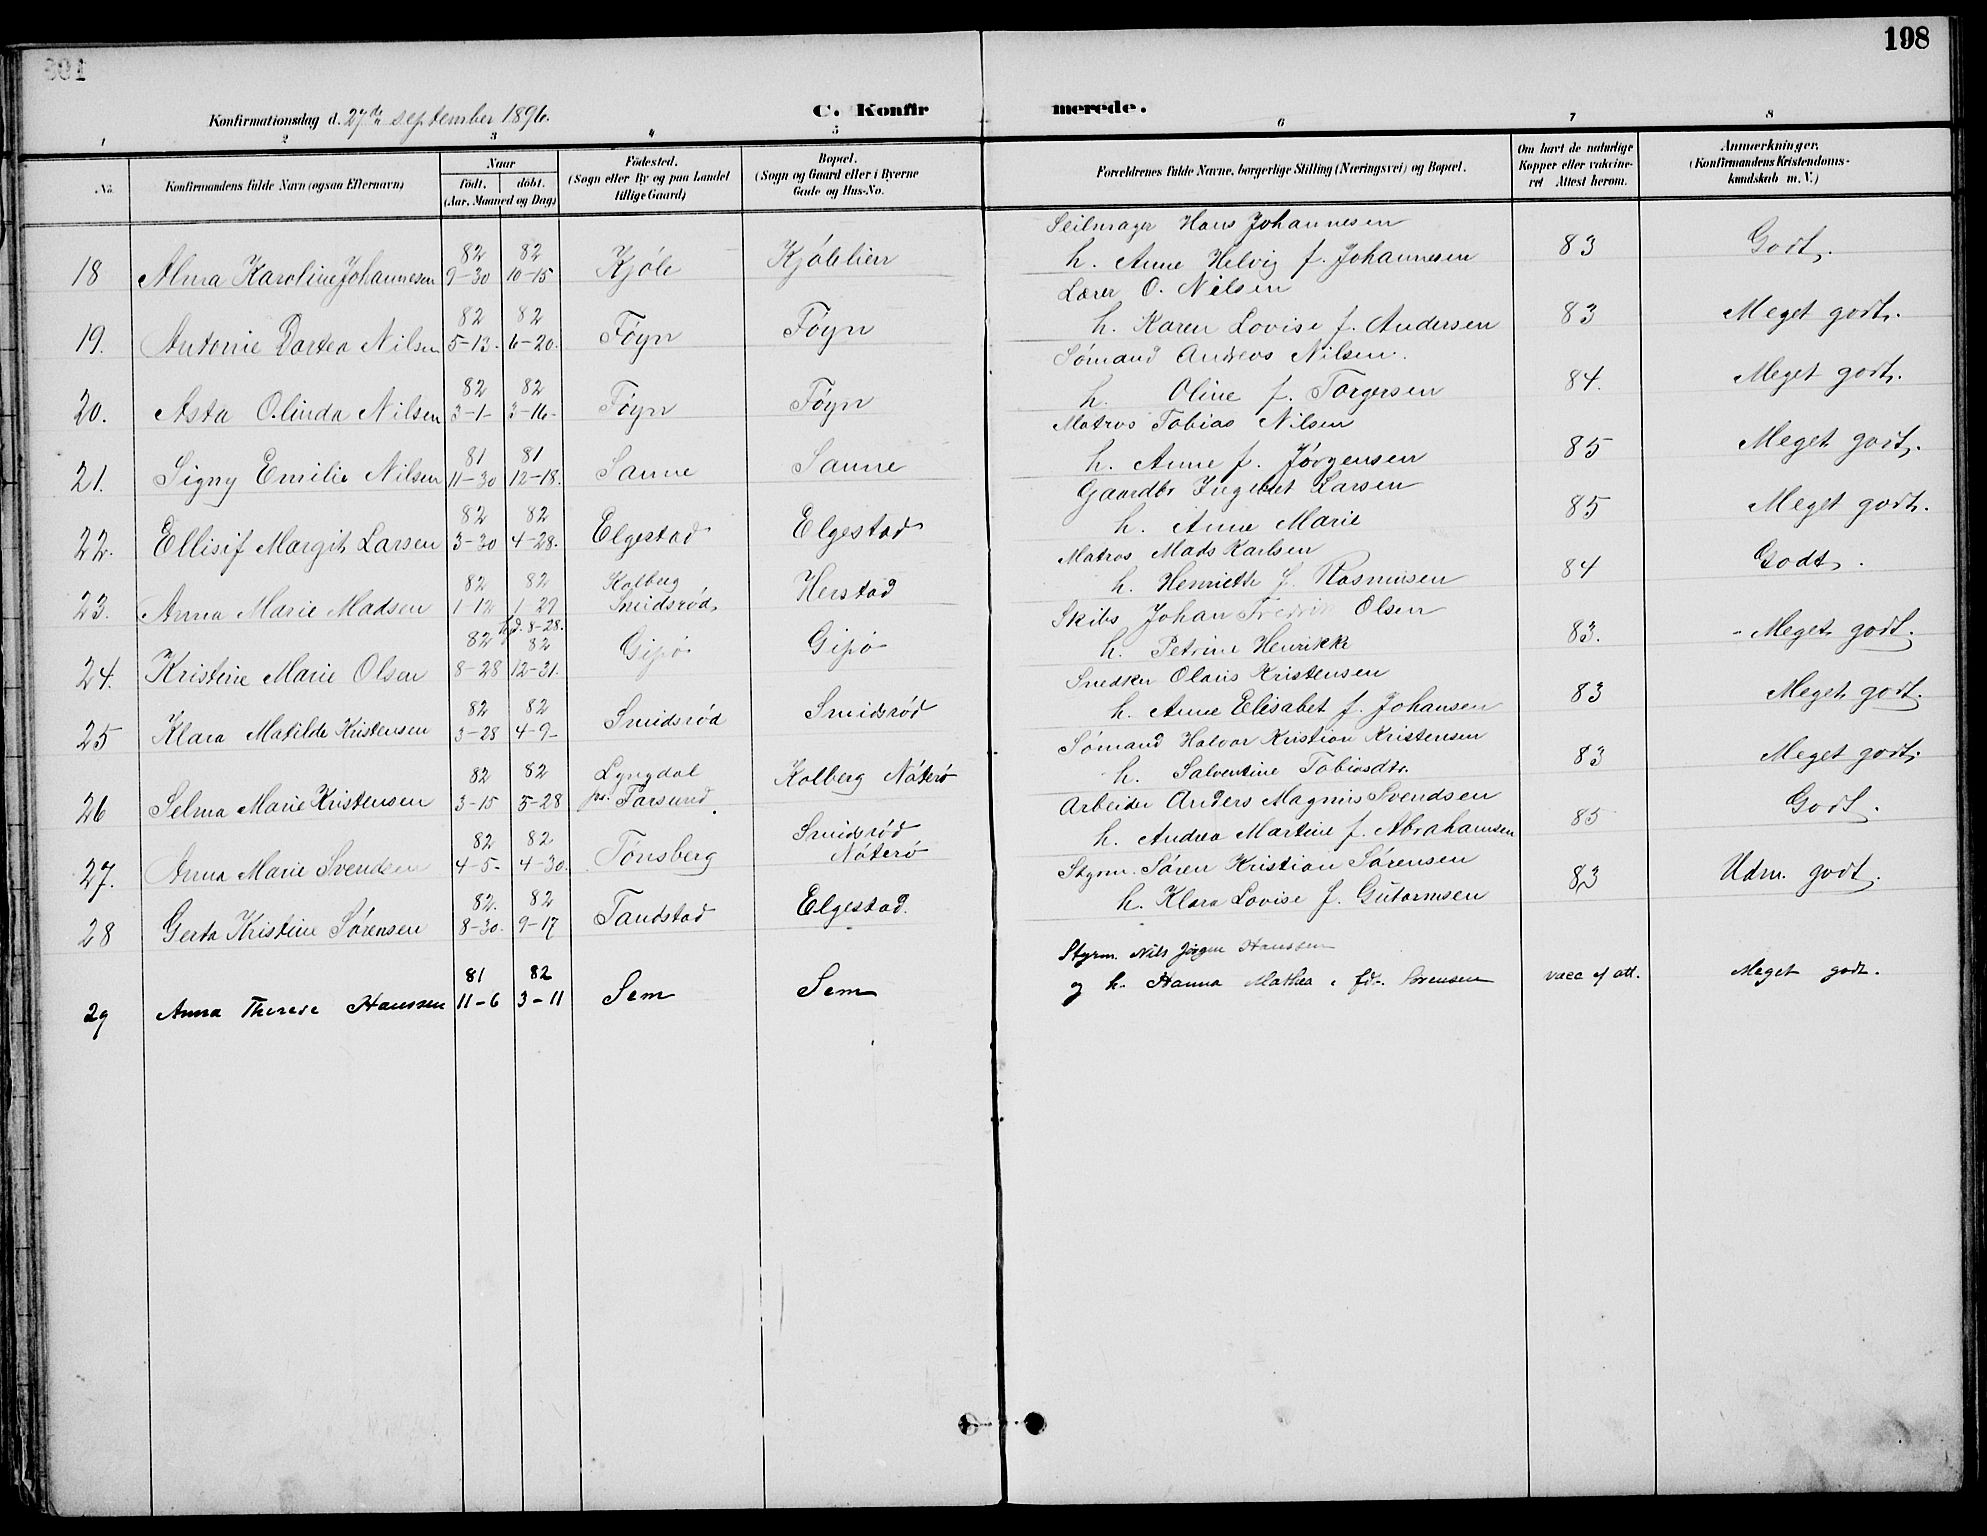 198
Konfirmationsdag d. 27de september 1896.
C. Konfirmerede.
1 2 3 4 5 6 7 8
No. Konfirmandens fulde Navn (ogsaa Efternavn) Naar født, døbt. (Aar, Maaned og Dag) Fødested. (Sogn eller By og paa Landet tillige Gaard) Bopæl. (Sogn og Gaard eller i Byerne Gade og Hus-No. Forældrenes fulde Navne, borgerlige Stilling (Næringsvei) og Bopæl. Om havt de naturlige Kopper eller vakcineret Attest herom. Anmærkninger. (Konfirmandens Kristendomskundskab m. V.)
18 Alma Karoline Johannesen 82 9-30 82 10-15 Kjøle Kjølelien Seilmager Hans Johannesen
h. Anne Helvig f. Johannesen 83 Godt.
19. Antonie Dortea Nilsen 82 5-13. 82 6-20. Føyn Føyn Lærer O. Nilsen
h. Karen Lovise f. Andersen 83 Meget godt.
20. Asta Olinda Nilsen 82 3-1- 82 3-16- Føyn Føyn Sømand Andreas Nilsen.
h. Oline f. Torgersen 84. Meget godt.
21. Signy Emilie Nilsen 81 11-30 81 12-18. Sanne Sanne Matros Tobias Nilsen
h. Anne f. Jørgensen 85 Meget godt.
22. Ellisif Margit Larsen 82 3-30 82 4-28. Elgestad Elgestad Gaardbr Ingebret Larsen
h. Anne Marie 85 Meget godt.
23. Anna Marie Madsen 82 1-12 82 1-29 Kolberg Smidsrød Herstad Matros Mads Karlsen
h. Henriette f. Rasmusen 84 Godt.
24. Kristine Marie Olsen 82 8-28 8-28. 82 12-31. Gipø Gipø Skibs Johan Fredrik Olsen
h. Petrine Henrikke 83. - Meget godt.
25 Klara Matilde Kristensen 82 3-28 82 4-9- Smidsrød Smidsrød Snedker Olaus Kristensen
h. Anne Elisabet f. Johansen 83 Meget godt.
26 Selma Marie Kristensen 82 3-15 82 5-28 Lyngdal pr. Farsund. Kolberg Nøterø Sømand Halvor Kristian Kristensen
h. Salventine Tobiasdtr. 83 Meget godt.
27. Anna Marie Svendsen 82 4-5- 82 4-30. Tønsberg Smidsrød Nøterø Arbeider Anders Magnus Svendsen
h. Andrea Martine f. Abrahamsen 85 Godt.
28 Gerta Kristine Sørensen 82. 8-30. 82 9-17 Tandstad Elgestad. Styrm. Søren Kristian Sørensen
h. Klara Lovise f. Gutormsen 83 Udm. godt.
29 Anna Therese Hanssen 81 11-6 82 3-11 Sem Sem Styrm. Nils Jørgen Hanssen
og h. Hanna Mathea, fd. Sørensen vacc e/ att. Meget godt.